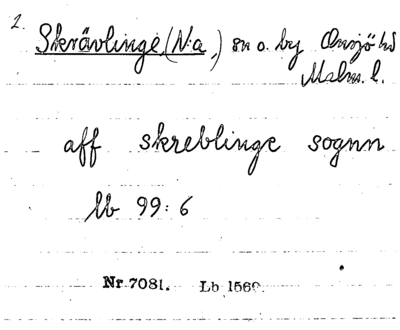 2.
Skrävlinge, (N:a,) sn o. by Onsjö hd
Malm. l.
aff skreblinge sognn
lb 99: 6
Nr 7081. Lb 1569.